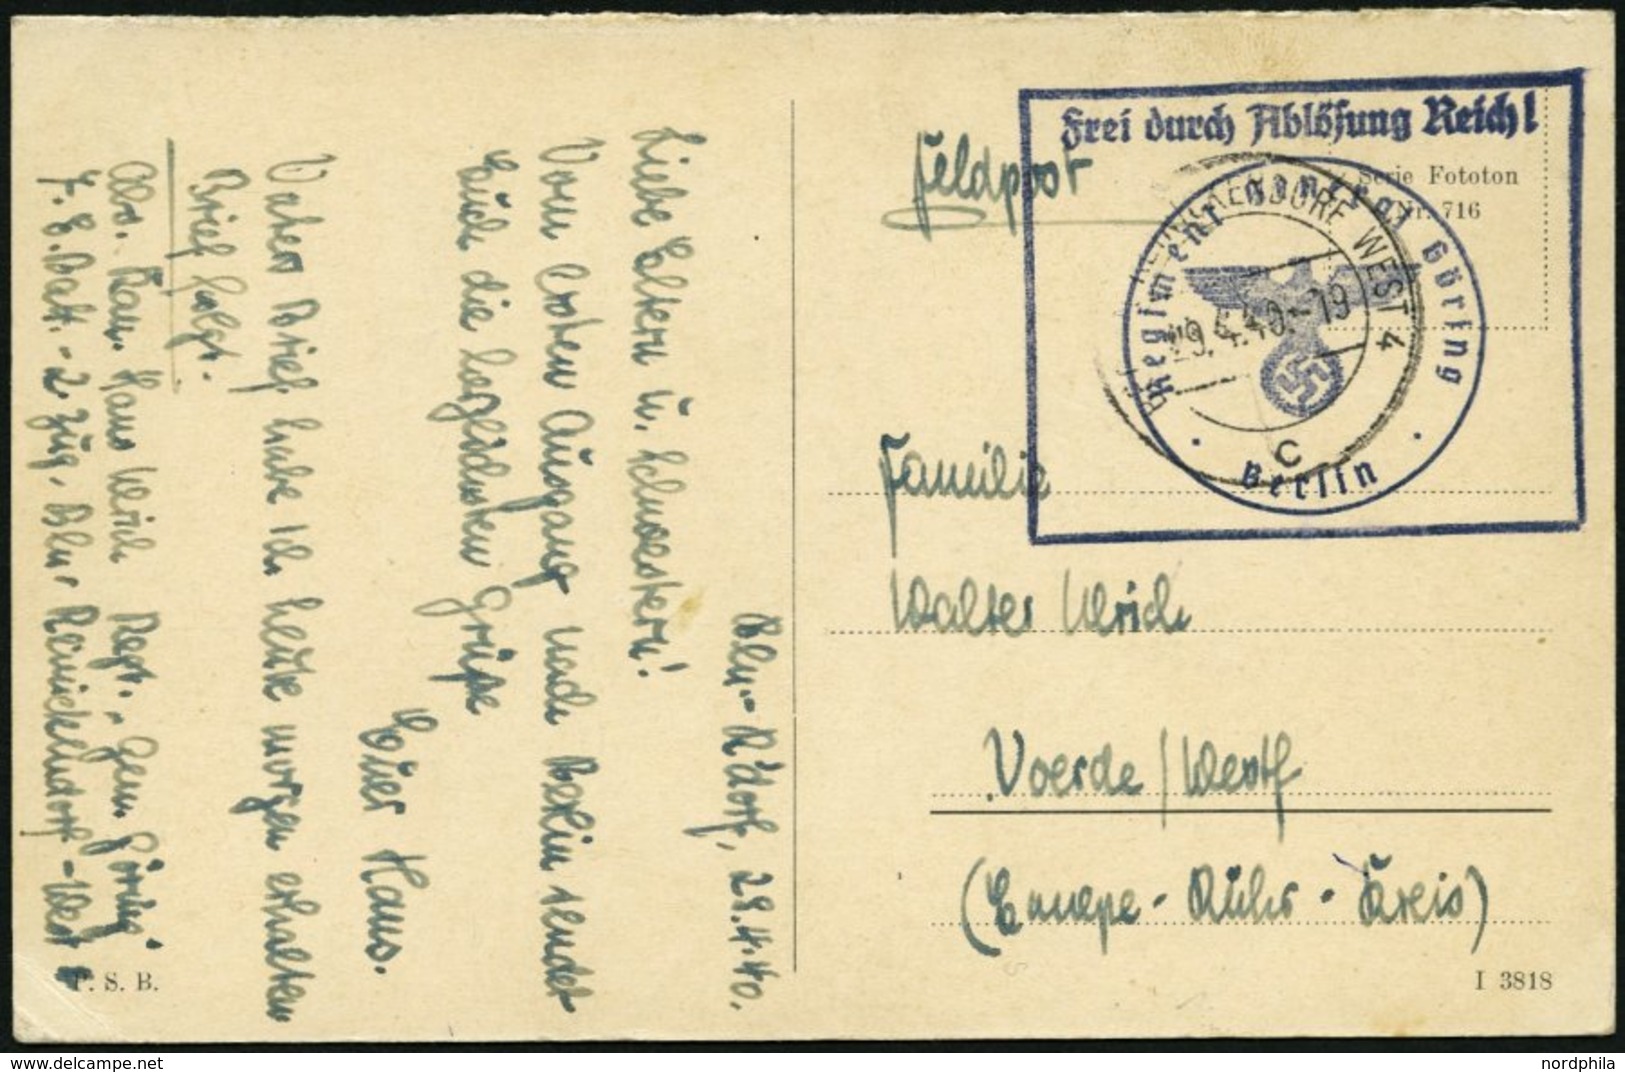 Bln.-R'dorf, 28.4.40.
Liebe Eltern u. Schwestern!
Vom ersten Ausgang nach Berlin sendet
Euch die herzlichsten Grüße
Euer Hans.
Vaters Brief habe ich heute morgen erhalten
Brief folgt.
Abs. Kan. Hans Ulrich Regt. "Gen. Göring"
7. E.Batt. - 2. Zug. Bln. Reinickendorf-West
P. S. B.
Feldpost
Frei durch Ablösung Reich!
Serie Fototon
Nr. 716
Regiment General Göring
Berlin
REINICKENDORF WEST 4
29.4.40.-19
c
Familie
Walter Ulrich
Voerde/Westf
(Ennepe-Ruhr-Kreis)
I 3818
nordphila